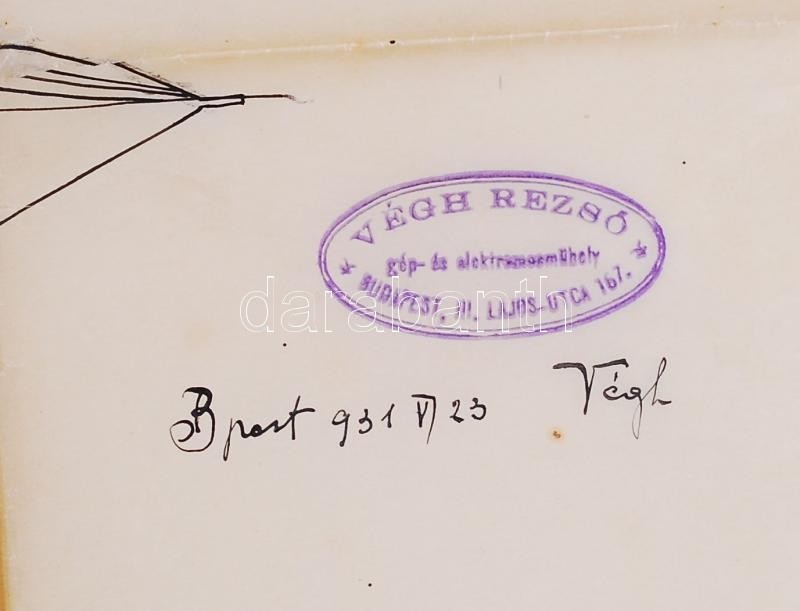 VÉGH REZSŐ
gép- és elektromosműhely
BUDAPEST, III. LAJOS-UTCA 167.
darabanth
Bpest 931 VI 23 Végh